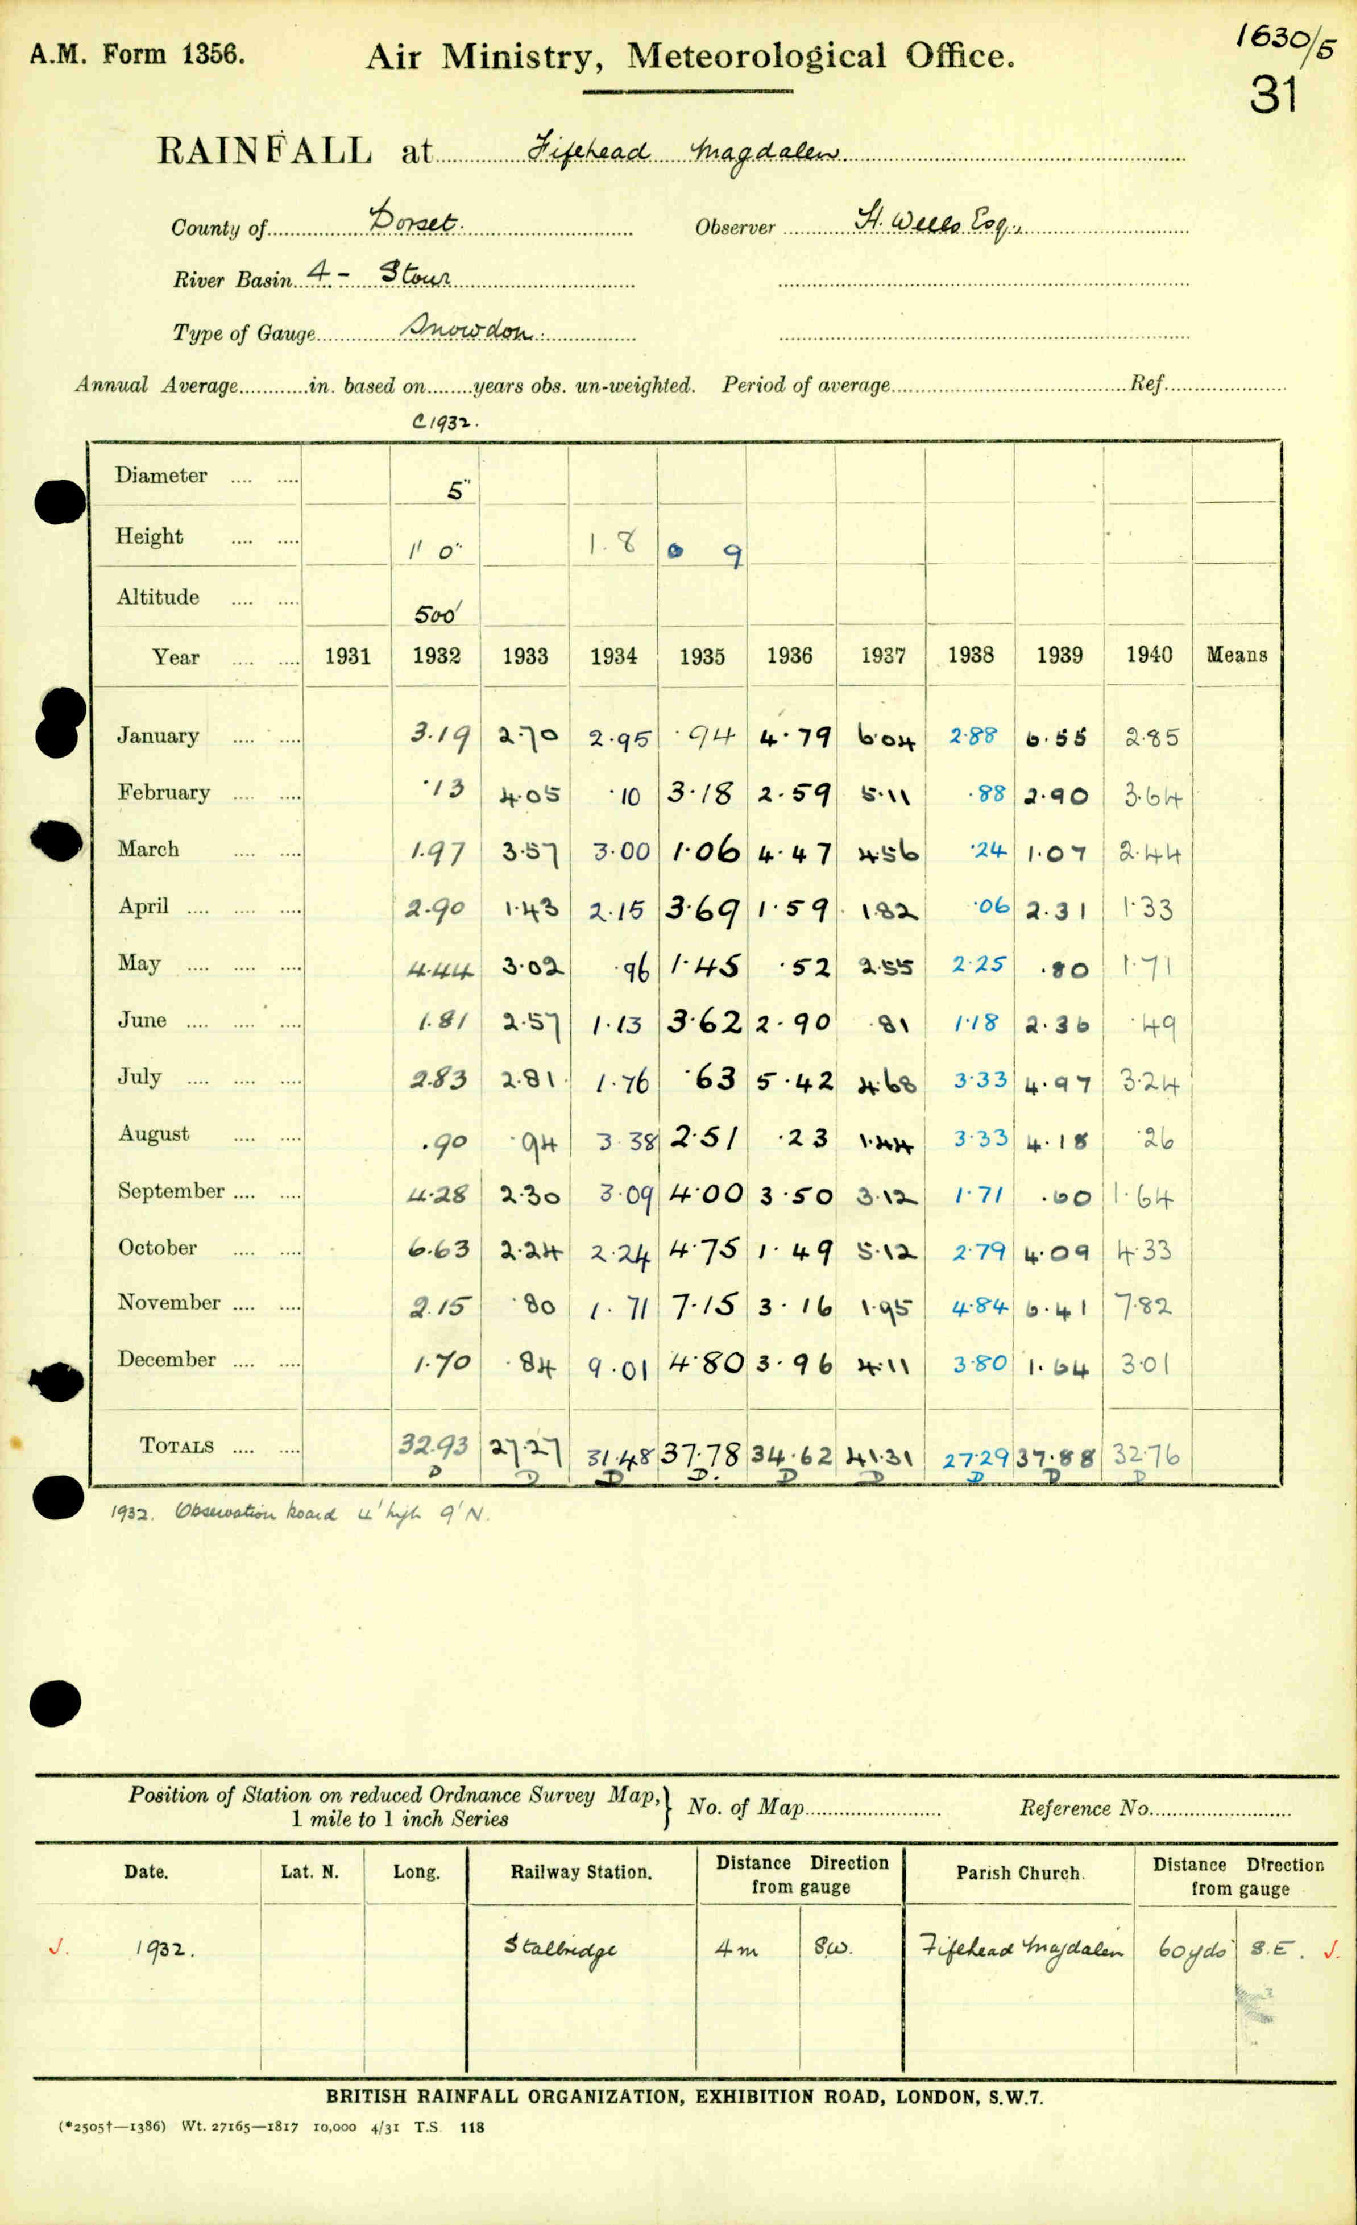 A.M. Form 1356.
Air Ministry, Meteorological Office.
1630/5
31
RAINFALL at Fifehead Magdalen
County of Dorset. Observer H. Wells Esq.,
River Basin 4 - Stour
Type of Gauge Snowdon.
Annual Average............in. based on........years obs. un-weighted. Period of average.......... Ref..........
C1932.
Diameter .... .... 5"
Height .... .... 1' 0" 1.8 0 9
Altitude .... .... 500'
Year .... .... 1931 1932 1933 1934 1935 1936 1937 1938 1939 1940 Means
January .... .... 3.19 2.70 2.95 .94 4.79 6.04 2.88 6.55 2.85
February .... .... .13 4.05 .10 3.18 2.59 5.11 .88 2.90 3.64
March .... .... 1.97 3.57 3.00 1.06 4.47 4.56 .24 1.07 2.44
April .... .... .... 2.90 1.43 2.15 3.69 1.59 1.82 .06 2.31 1.33
May .... .... .... 4.44 3.02 .96 1.45 .52 2.55 2.25 .80 1.71
June .... .... .... 1.81 2.57 1.13 3.62 2.90 .81 1.18 2.36 .49
July .... .... .... 2.83 2.81 1.76 .63 5.42 4.68 3.33 4.97 3.24
August .... .... .90 .94 3.38 2.51 .23 1.44 3.33 4.18 .26
September .... .... 4.28 2.30 3.09 4.00 3.50 3.12 1.71 .60 1.64
October .... .... 6.63 2.24 2.24 4.75 1.49 5.12 2.79 4.09 4.33
November .... .... 2.15 .80 1.71 7.15 3.16 1.95 4.84 6.41 7.82
December .... .... 1.70 .84 9.01 4.80 3.96 4.11 3.80 1.64 3.01
TOTALS .... .... 32.93 27.27 31.48 37.78 34.62 41.31 27.29 37.88 32.76
D D D D. D D D D D
1932. Observation board 4' high 9' N.
Position of Station on reduced Ordnance Survey Map, 1 mile to 1 inch Series } No. of Map.......... Reference No..........
Date. Lat. N. Long. Railway Station. Distance Direction from gauge Parish Church. Distance Direction from gauge
J. 1932. Stalbridge 4 m SW. Fifehead Magdalen 60 yds S.E. J.
BRITISH RAINFALL ORGANIZATION, EXHIBITION ROAD, LONDON, S.W.7.
(*2505†—1386) Wt. 27165—1817 10,000 4/31 T.S. 118